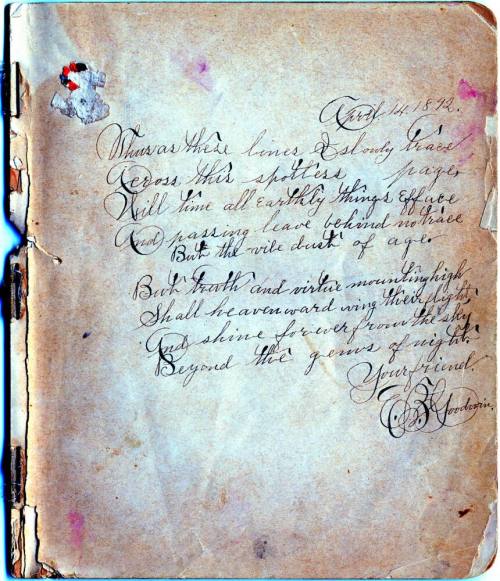 April 14. 1892.
Thus as these lines I slowly trace
Across this spotless page
Will time all Earthly things Efface
And passing leave behind no trace
But the vile dust of age.
But truth and virtue mounting high
Shall heavenward wing their flight
And shine forever from the sky
Beyond the gems of night.
Your friend.
Goodwin.